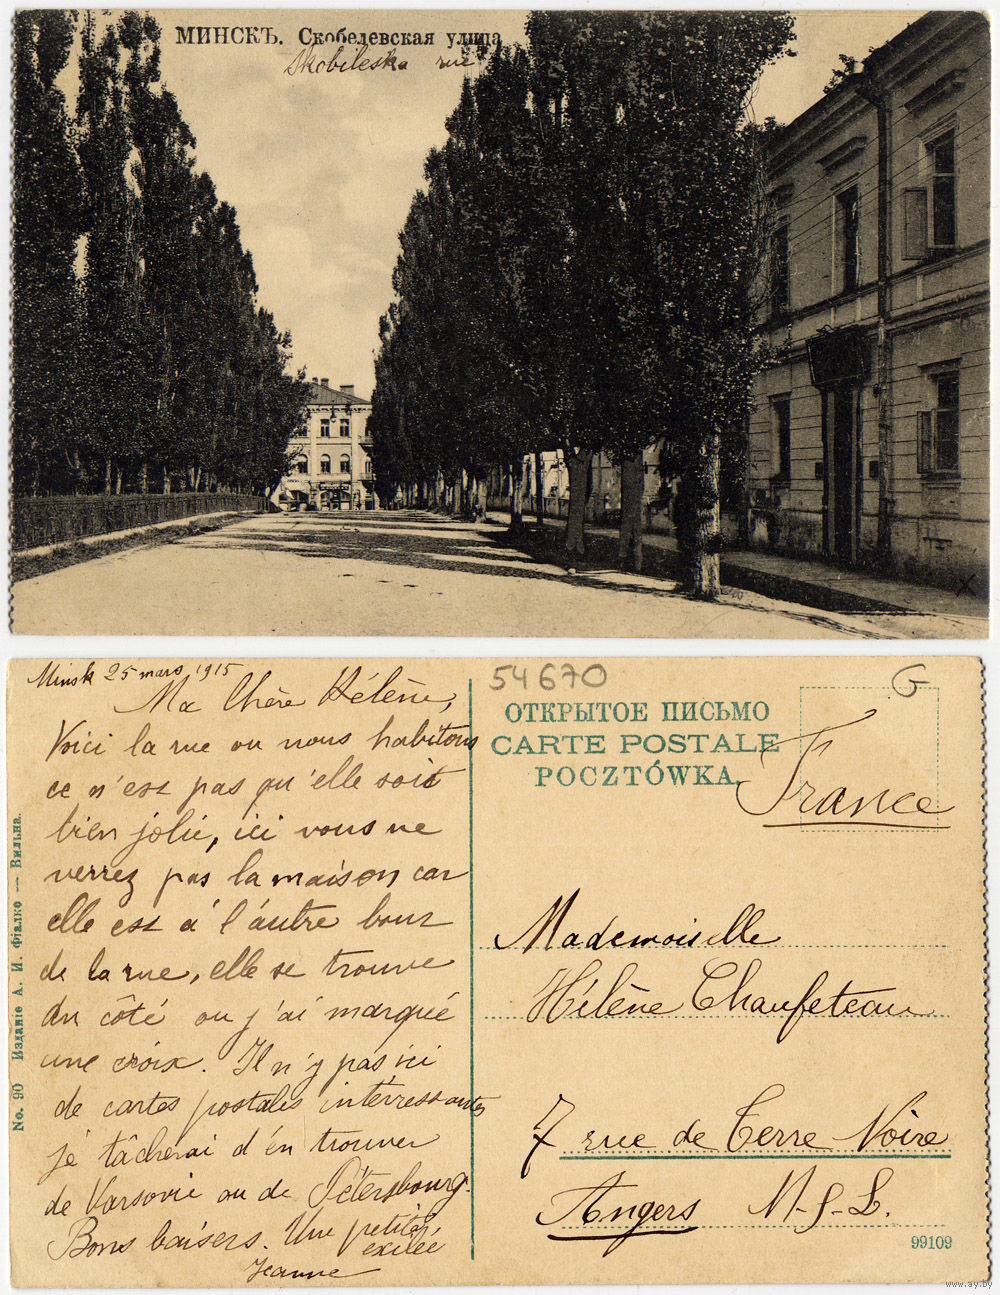 МИНСКЪ. Скобелевская улица
Skobileska rue
X
Minsk 25 mars 1915
Ma Chère Hélène,
Voici la rue ou nous habitons
ce n'est pas qu'elle soit
bien jolie, ici vous ne
verrez pas la maison car
elle est à l'autre bout
de la rue, elle se trouve
du côté ou j'ai marqué
une croix. Il n'y pas ici
de cartes postales intérressantes
je tâcherai d'en trouver
de Varsovie ou de Pétersbourg.
Bons baisers. Une petite
exilée
Jeanne
No. 90 Изданіе А. И. Фіалко — Вильна.
54670
G
ОТКРЫТОЕ ПИСЬМО
CARTE POSTALE
POCZTÓWKA.
France
Mademoiselle
Hélène Chaufeteau
7 rue de Terre Noire
Angers M-&-L.
99109
www.ay.by